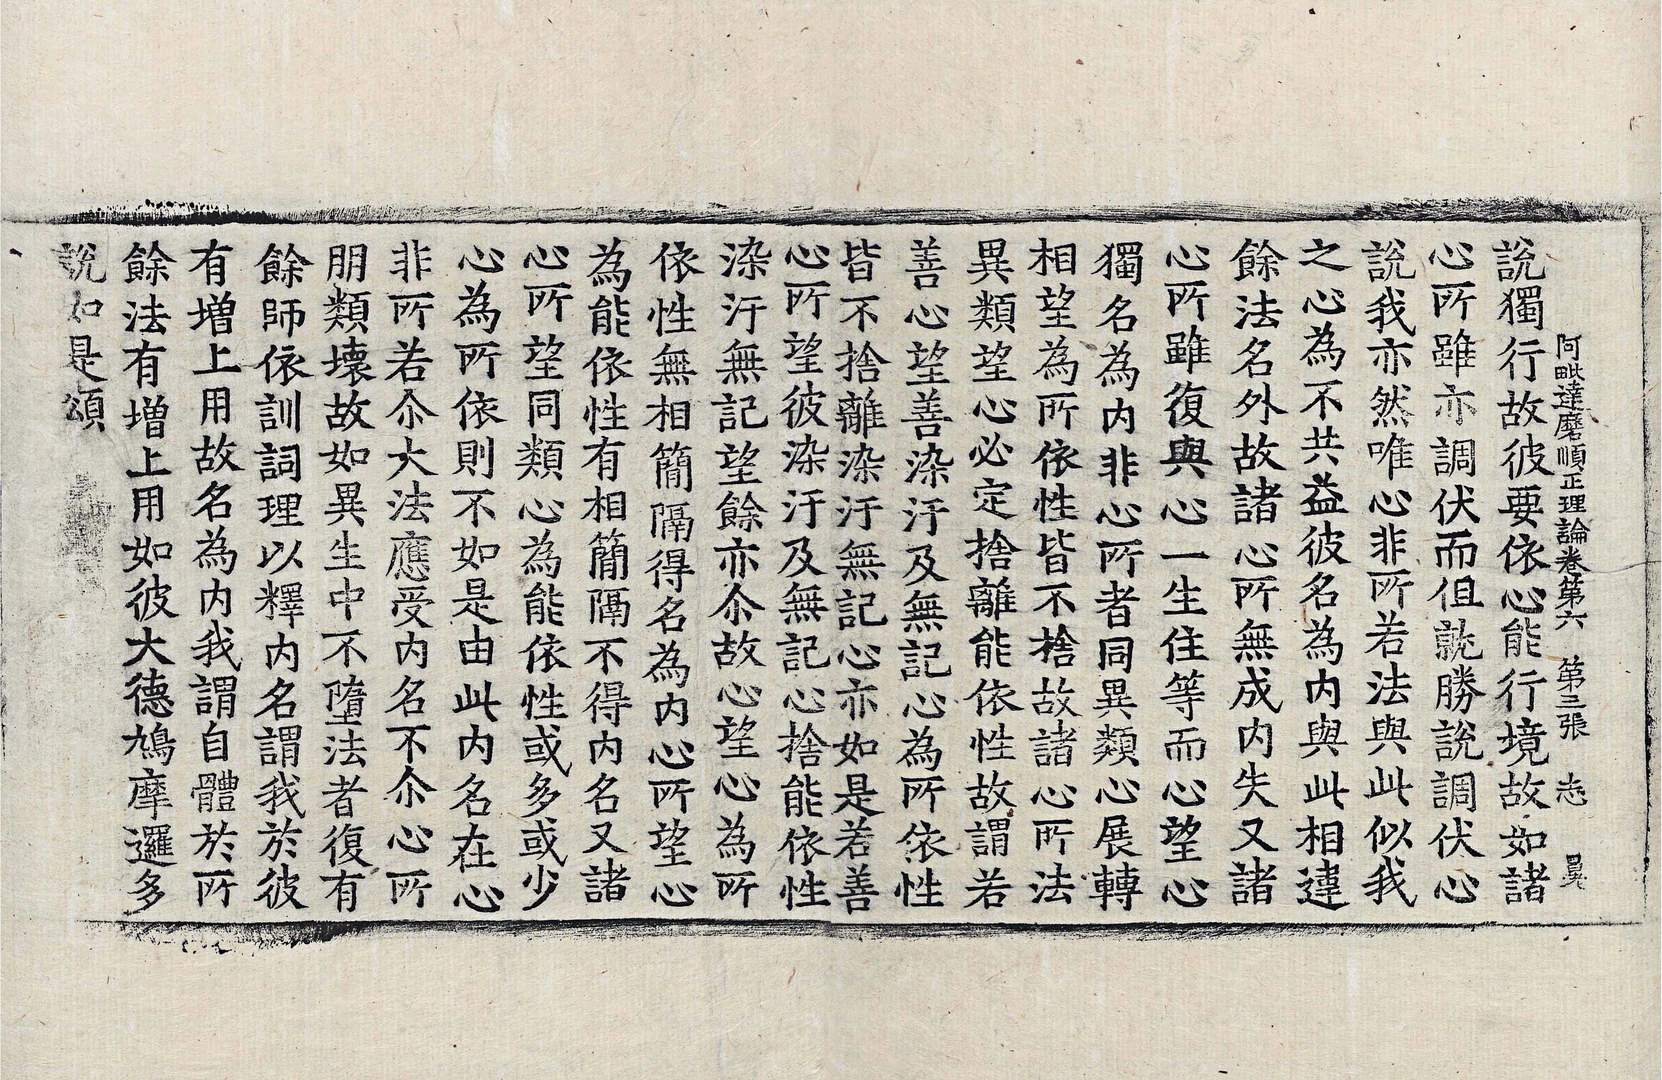 阿毗達磨順正理論卷第六　第三張　志　晃
說獨行故彼要依心能行境故如諸
心所雖亦調伏而但就勝說調伏心
說我亦然唯心非所若法與此似我
之心為不共益彼名為內與此相違
餘法名外故諸心所無成內失又諸
心所雖復與心一生住等而心望心
獨名為內非心所者同異類心展轉
相望為所依性皆不捨故諸心所法
異類望心必定捨離能依性故謂若
善心望善染汙及無記心為所依性
皆不捨離染汙無記心亦如是若善
心所望彼染汙及無記心捨能依性
染汙無記望餘亦尒故心望心為所
依性無相簡隔得名為內心所望心
為能依性有相簡隔不得內名又諸
心所望同類心為能依性或多或少
心為所依則不如是由此內名在心
非所若尒大法應受內名不尒心所
朋類壞故如異生中不墮法者復有
餘師依訓詞理以釋內名謂我於彼
有增上用故名為內我謂自體於所
餘法有增上用如彼大德鳩摩邏多
說如是頌